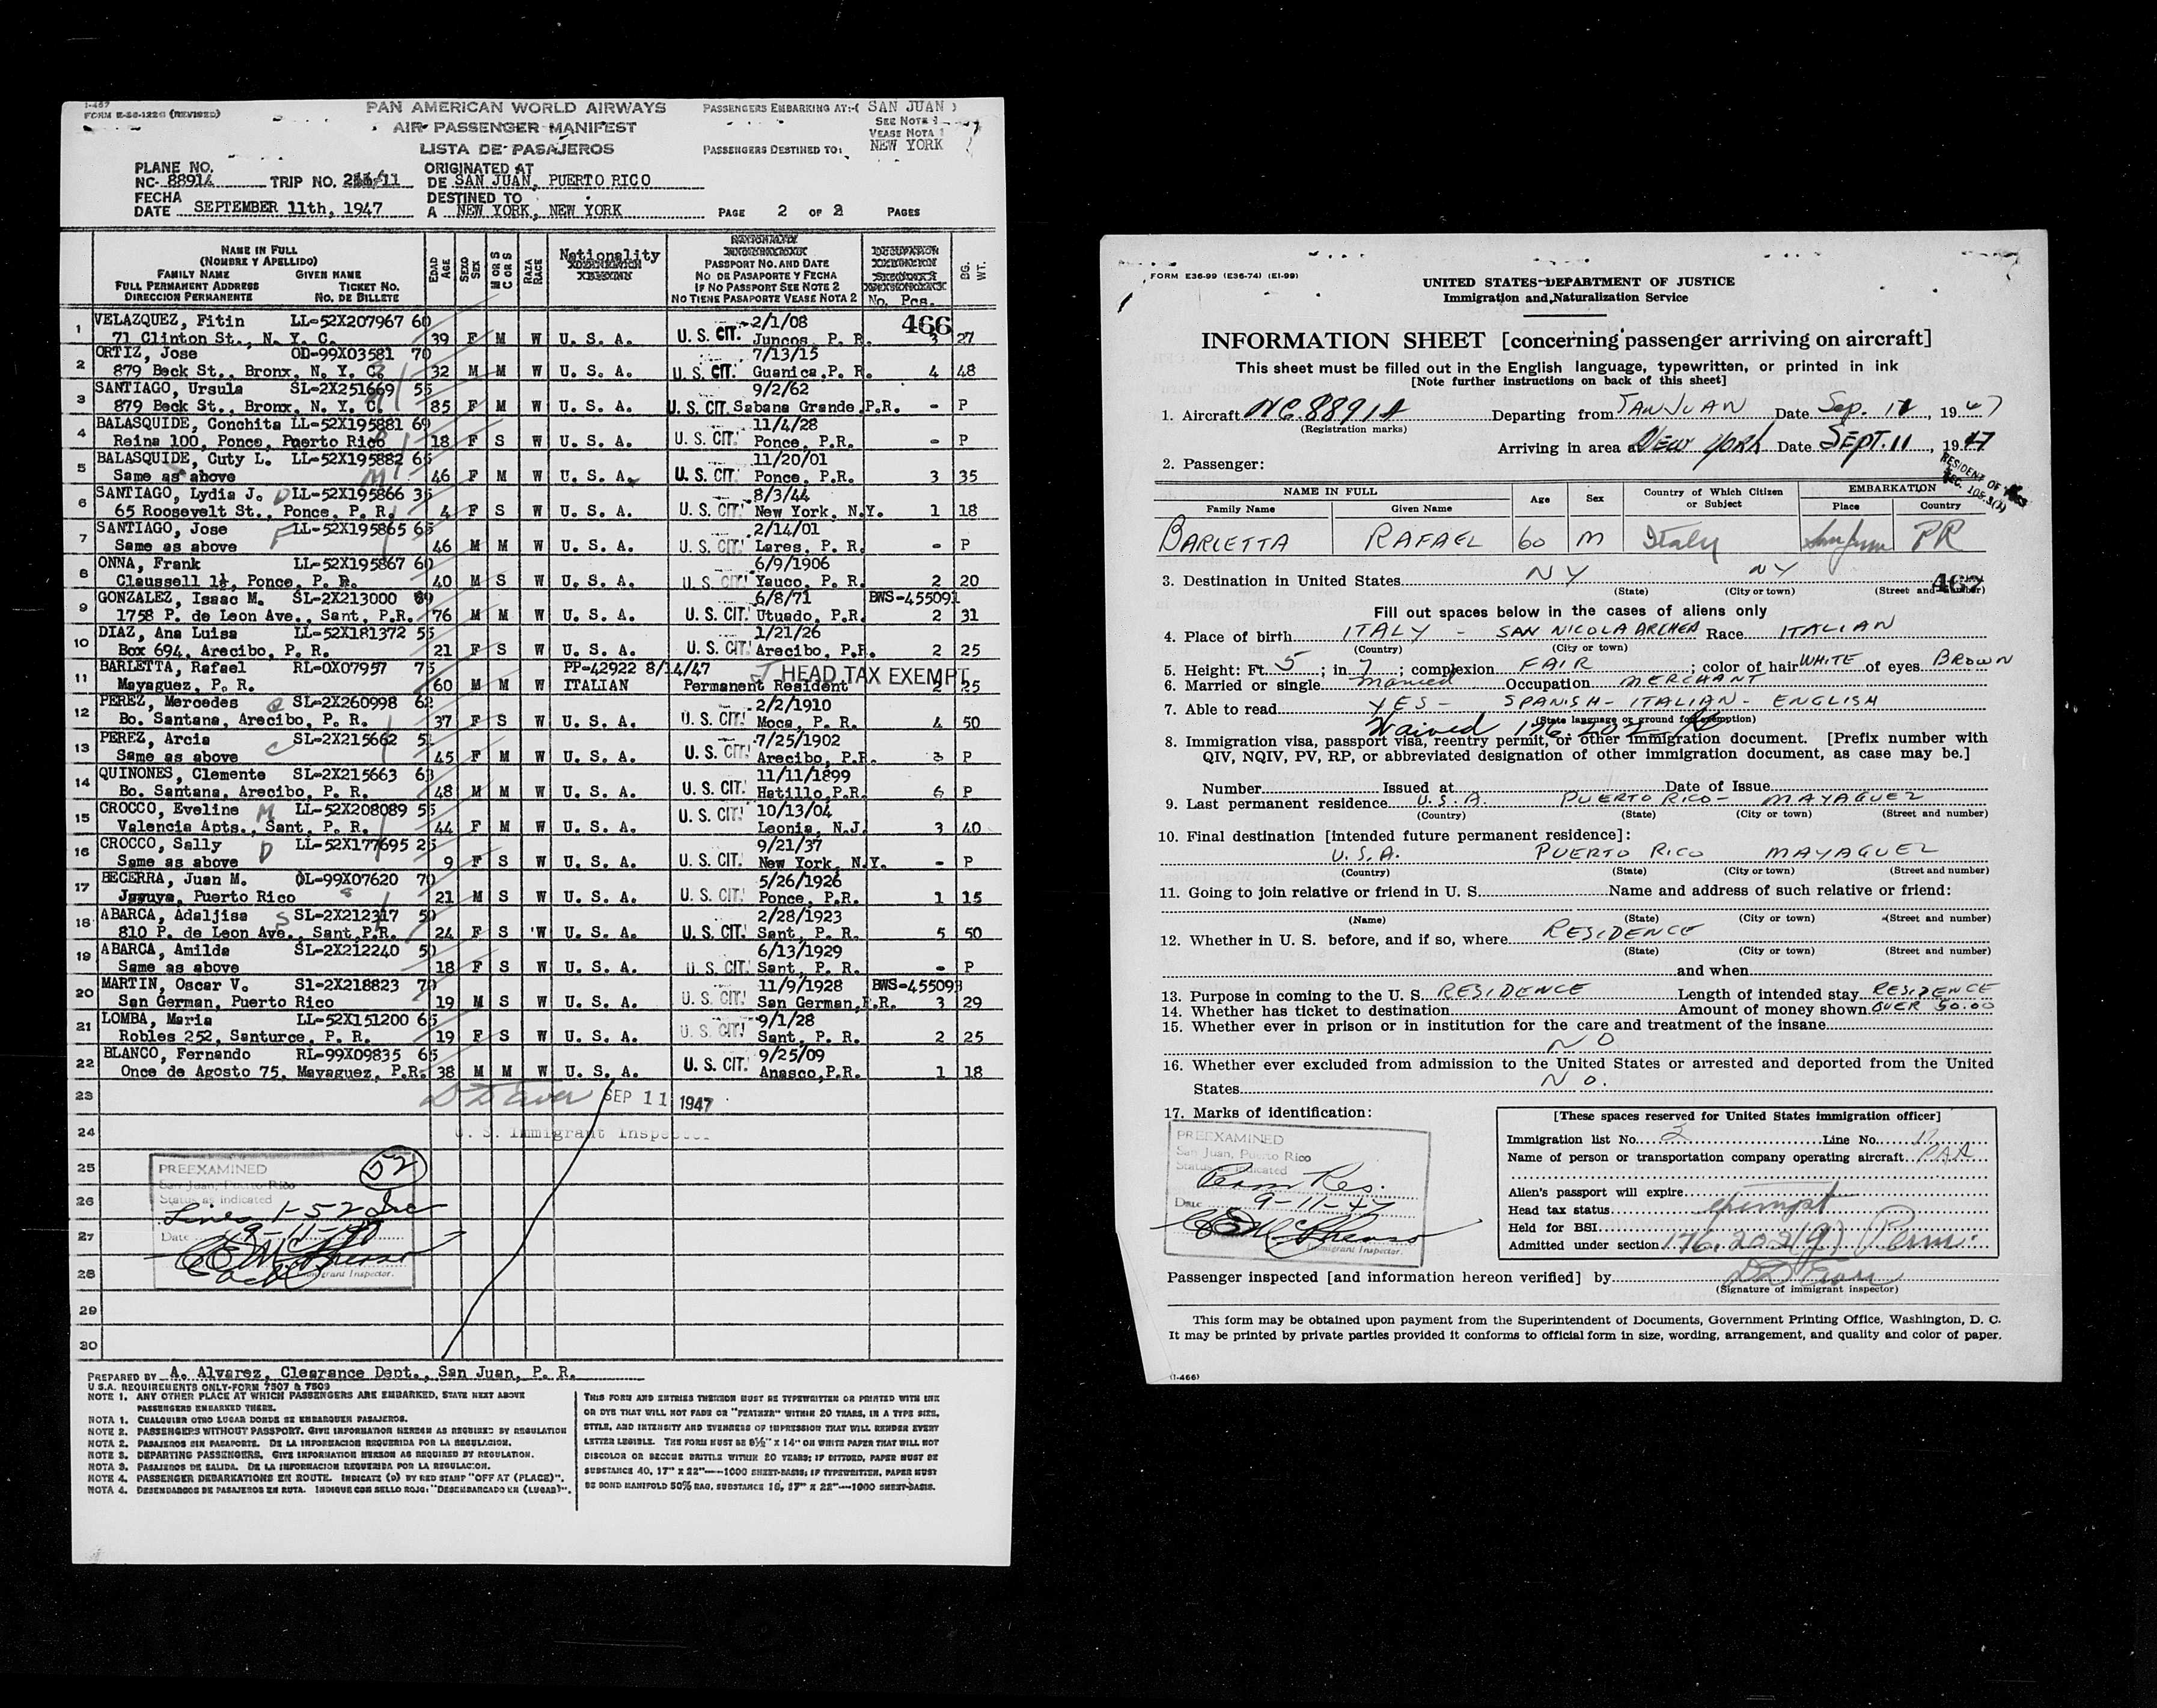 I-467
FORM E-56-122G (REVISED)
PAN AMERICAN WORLD AIRWAYS
AIR PASSENGER MANIFEST
LISTA DE PASAJEROS
PASSENGERS EMBARKING AT:-( SAN JUAN )
SEE NOTE 1
VEASE NOTA 1
PASSENGERS DESTINED TO: NEW YORK
PLANE NO.
NC- 88914 TRIP NO.
ORIGINATED AT
DE SAN JUAN, PUERTO RICO
FECHA
DATE SEPTEMBER 11th, 1947
DESTINED TO
A NEW YORK, NEW YORK
PAGE 2 OF 2 PAGES
NAME IN FULL
(NOMBRE Y APELLIDO)
FAMILY NAME GIVEN NAME
FULL PERMANENT ADDRESS TICKET NO.
DIRECCION PERMANENTE NO. DE BILLETE
EDAD AGE
SEXO SEX
M OR S
C OR S
RAZA RACE
Nationality
PASSPORT NO. AND DATE
NO DE PASAPORTE Y FECHA
IF NO PASSPORT SEE NOTE 2
NO TIENE PASAPORTE VEASE NOTA 2
No. Pcs.
BG. WT.
466
1 VELAZQUEZ, Fitin LL-52X207967 60 2/1/08
71 Clinton St., N. Y. C. 39 F M W U. S. A. U. S. CIT. Juncos, P. R. 3 27
2 ORTIZ, Jose OD-99X03581 70 7/13/15
879 Beck St., Bronx, N. Y. C. 32 M M W U. S. A. U. S. CIT. Guanica, P. R. 4 48
3 SANTIAGO, Ursula SL-2X251669 55 9/2/62
879 Beck St., Bronx, N. Y. C. 85 F M W U. S. A. U. S. CIT. Sabana Grande, P.R. - P
4 BALASQUIDE, Conchita LL-52X195881 69 11/4/28
Reina 100, Ponce, Puerto Rico 18 F S W U. S. A. U. S. CIT. Ponce, P.R. - P
5 BALASQUIDE, Cuty L. LL-52X195882 65 11/20/01
Same as above 46 F M W U. S. A. U. S. CIT. Ponce, P.R. 3 35
6 SANTIAGO, Lydia J. D LL-52X195866 35 8/3/44
65 Roosevelt St., Ponce, P. R. 4 F S W U. S. A. U. S. CIT. New York, N.Y. 1 18
7 SANTIAGO, Jose F LL-52X195865 65 2/14/01
Same as above 46 M M W U. S. A. U. S. CIT. Lares, P. R. - P
8 ONNA, Frank LL-52X195867 60 6/9/1906
Claussell 1½, Ponce, P. R. 40 M S W U. S. A. U. S. CIT. Yauco, P. R. 2 20
9 GONZALEZ, Isaac M. SL-2X213000 69 6/8/71 BWS-455091
1758 P. de Leon Ave., Sant, P.R. 76 M M W U. S. A. U. S. CIT. Utuado, P.R. 2 31
10 DIAZ, Ana Luisa LL-52X181372 55 1/21/26
Box 694, Arecibo, P. R. 21 F S W U. S. A. U. S. CIT. Arecibo, P.R. 2 25
11 BARLETTA, Rafael RL-0X07957 75 PP-42922 8/14/47 HEAD TAX EXEMPT
Mayaguez, P. R. 60 M M W ITALIAN Permanent Resident 2 25
12 PEREZ, Mercedes SL-2X260998 62 2/2/1910
Bo. Santana, Arecibo, P. R. 37 F S W U. S. A. U. S. CIT. Moca, P. R. 4 50
13 PEREZ, Arcia SL-2X215662 5 7/25/1902
Same as above 45 F M W U. S. A. U. S. CIT. Arecibo, P.R. 3 P
14 QUINONES, Clemente SL-2X215663 63 11/11/1899
Bo. Santana, Arecibo, P. R. 48 M M W U. S. A. U. S. CIT. Hatillo, P.R. 6 P
15 CROCCO, Eveline M LL-52X208089 55 10/13/04
Valencia Apts., Sant, P. R. 44 F M W U. S. A. U. S. CIT. Leonia, N.J. 3 40
16 CROCCO, Sally D LL-52X177695 25 9/21/37
Same as above 9 F S W U. S. A. U. S. CIT. New York, N.Y. - P
17 BECERRA, Juan M. OL-99X07620 70 5/26/1926
Jayuya, Puerto Rico 21 M S W U. S. A. U. S. CIT. Ponce, P.R. 1 15
18 ABARCA, Adaljisa S SL-2X212317 50 2/28/1923
810 P. de Leon Ave., Sant, P.R. 24 F S W U. S. A. U. S. CIT. Sant, P. R. 5 50
19 ABARCA, Amilda SL-2X212240 50 6/13/1929
Same as above 18 F S W U. S. A. U. S. CIT. Sant, P. R. - P
20 MARTIN, Oscar V. Sl-2X218823 70 11/9/1928 BWS-455093
San German, Puerto Rico 19 M S W U. S. A. U. S. CIT. San German, P.R. 3 29
21 LOMBA, Maria LL-52X151200 65 9/1/28
Robles 252, Santurce, P. R. 19 F S W U. S. A. U. S. CIT. Sant, P. R. 2 25
22 BLANCO, Fernando RL-99X09835 65 9/25/09
Once de Agosto 75, Mayaguez, P.R. 38 M M W U. S. A. U. S. CIT. Anasco, P.R. 1 18
23 SEP 11 1947
24 U. S. Immigrant Inspector
25 PREEXAMINED 52
San Juan, Puerto Rico
26 Status as indicated
Lines 1-52 Inc
27 Date 9-11-47
28 Immigrant Inspector.
29
30
PREPARED BY A. Alvarez, Clearance Dept., San Juan, P. R.
U.S.A. REQUIREMENTS ONLY-FORM 7507 & 7509
NOTE 1. ANY OTHER PLACE AT WHICH PASSENGERS ARE EMBARKED, STATE NEXT ABOVE
PASSENGERS EMBARKED THERE.
NOTA 1. CUALQUIER OTRO LUGAR DONDE SE EMBARQUEN PASAJEROS.
NOTE 2. PASSENGERS WITHOUT PASSPORT. GIVE INFORMATION HEREON AS REQUIRED BY REGULATION
NOTA 2. PASAJEROS SIN PASAPORTE. DE LA INFORMACION REQUERIDA POR LA REGULACION.
NOTE 3. DEPARTING PASSENGERS. GIVE INFORMATION HEREON AS REQUIRED BY REGULATION.
NOTA 3. PASAJEROS DE SALIDA. DE LA INFORMACION REQUERIDA POR LA REGULACION.
NOTE 4. PASSENGER DEBARKATIONS EN ROUTE. INDICATE (D) BY RED STAMP "OFF AT (PLACE)".
NOTA 4. DESEMBARCOS DE PASAJEROS EN RUTA. INDIQUE CON SELLO ROJO: "DESEMBARCADO EN (LUGAR)".
THIS FORM AND ENTRIES THEREON MUST BE TYPEWRITTEN OR PRINTED WITH INK
OR DYE THAT WILL NOT FADE OR "FEATHER" WITHIN 20 YEARS, IN A TYPE SIZE,
STYLE, AND INTENSITY AND EVENNESS OF IMPRESSION THAT WILL RENDER EVERY
LETTER LEGIBLE. THE FORM MUST BE 8½" X 14" ON WHITE PAPER THAT WILL NOT
DISCOLOR OR BECOME BRITTLE WITHIN 20 YEARS; IF DITTOED, PAPER MUST BE
SUBSTANCE 40, 17" X 22"—1000 SHEET-BASIS; IF TYPEWRITTEN, PAPER MUST
BE BOND MANIFOLD 50% RAG, SUBSTANCE 16, 17" X 22"—1000 SHEET-BASIS.
FORM E36-99 (E36-74) (EI-99)
UNITED STATES DEPARTMENT OF JUSTICE
Immigration and Naturalization Service
INFORMATION SHEET [concerning passenger arriving on aircraft]
This sheet must be filled out in the English language, typewritten, or printed in ink
[Note further instructions on back of this sheet]
1. Aircraft NC 88914 Departing from SAN JUAN Date Sep. 11, 1947
(Registration marks)
Arriving in area at NEW YORK Date SEPT. 11, 1947
RESIDENT OF
SEC. 105.3(1)
2. Passenger:
NAME IN FULL Age Sex Country of Which Citizen or Subject EMBARKATION
Family Name Given Name Place Country
BARLETTA RAFAEL 60 M Italy San Juan PR
3. Destination in United States NY NY 467
(State) (City or town) (Street and number)
Fill out spaces below in the cases of aliens only
4. Place of birth ITALY - SAN NICOLA ARCHEA Race ITALIAN
(Country) (City or town)
5. Height: Ft. 5; in. 7; complexion FAIR; color of hair WHITE of eyes BROWN
6. Married or single married Occupation MERCHANT
7. Able to read YES - SPANISH - ITALIAN - ENGLISH
(State language or ground for exemption)
Waived 176.202
8. Immigration visa, passport visa, reentry permit, or other immigration document. [Prefix number with
QIV, NQIV, PV, RP, or abbreviated designation of other immigration document, as case may be.]
Number Issued at Date of Issue
9. Last permanent residence U.S.A. PUERTO RICO - MAYAGUEZ
(Country) (State) (City or town) (Street and number)
10. Final destination [intended future permanent residence]:
U.S.A. PUERTO RICO MAYAGUEZ
(Country) (State) (City or town) (Street and number)
11. Going to join relative or friend in U. S. Name and address of such relative or friend:
(Name) (State) (City or town) (Street and number)
12. Whether in U. S. before, and if so, where RESIDENCE
(State) (City or town) (Street and number)
and when
13. Purpose in coming to the U. S. RESIDENCE Length of intended stay RESIDENCE
14. Whether has ticket to destination Amount of money shown OVER 50.00
15. Whether ever in prison or in institution for the care and treatment of the insane
NO
16. Whether ever excluded from admission to the United States or arrested and deported from the United
States No.
17. Marks of identification:
PREEXAMINED
San Juan, Puerto Rico
Status as indicated
Perm Res.
Date 9-11-47
Immigrant Inspector.
[These spaces reserved for United States immigration officer]
Immigration list No. 2 Line No. 11
Name of person or transportation company operating aircraft PAA
Alien's passport will expire
Head tax status exempt
Held for BSI
Admitted under section 176.202(g) Perm.
Passenger inspected [and information hereon verified] by
(Signature of immigrant inspector)
This form may be obtained upon payment from the Superintendent of Documents, Government Printing Office, Washington, D. C.
It may be printed by private parties provided it conforms to official form in size, wording, arrangement, and quality and color of paper.
(I-466)